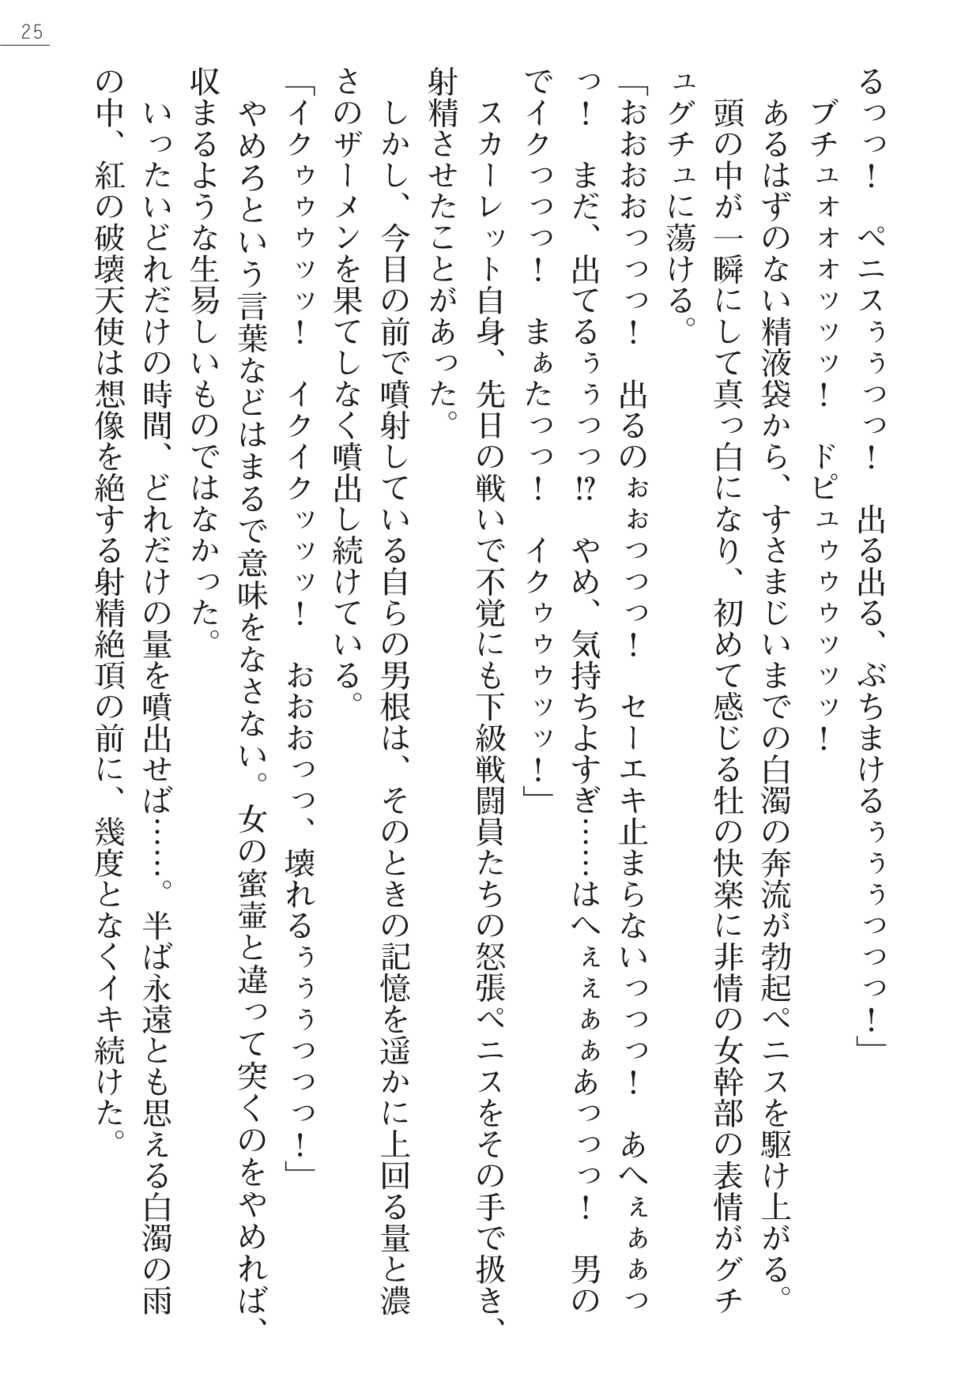 25
るっっ！　ペニスぅぅっっ！　出る出る、ぶちまけるぅぅぅっっっ！」
　ブチュォォォッッッ！　ドピュゥゥゥッッッ！
　あるはずのない精液袋から、すさまじいまでの白濁の奔流が勃起ペニスを駆け上がる。
　頭の中が一瞬にして真っ白になり、初めて感じる牡の快楽に非情の女幹部の表情がグチ
ュグチュに蕩ける。
「おおおおっっっ！　出るのぉぉっっっ！　セーエキ止まらないっっっ！　あへぇぁぁっ
っ！　まだ、出てるぅぅっっ!?　やめ、気持ちよすぎ……はへぇぇぁぁあっっっ！　男の
でイクっっっ！　まぁたっっ！　イクゥゥゥッッ！」
　スカーレット自身、先日の戦いで不覚にも下級戦闘員たちの怒張ペニスをその手で扱き、
射精させたことがあった。
　しかし、今目の前で噴射している自らの男根は、そのときの記憶を遥かに上回る量と濃
さのザーメンを果てしなく噴出し続けている。
「イクゥゥゥッッ！　イクイクッッッ！　おおおっっ、壊れるぅぅぅっっっ！」
　やめろという言葉などはまるで意味をなさない。女の蜜壷と違って突くのをやめれば、
収まるような生易しいものではなかった。
　いったいどれだけの時間、どれだけの量を噴出せば……。半ば永遠とも思える白濁の雨
の中、紅の破壊天使は想像を絶する射精絶頂の前に、幾度となくイキ続けた。